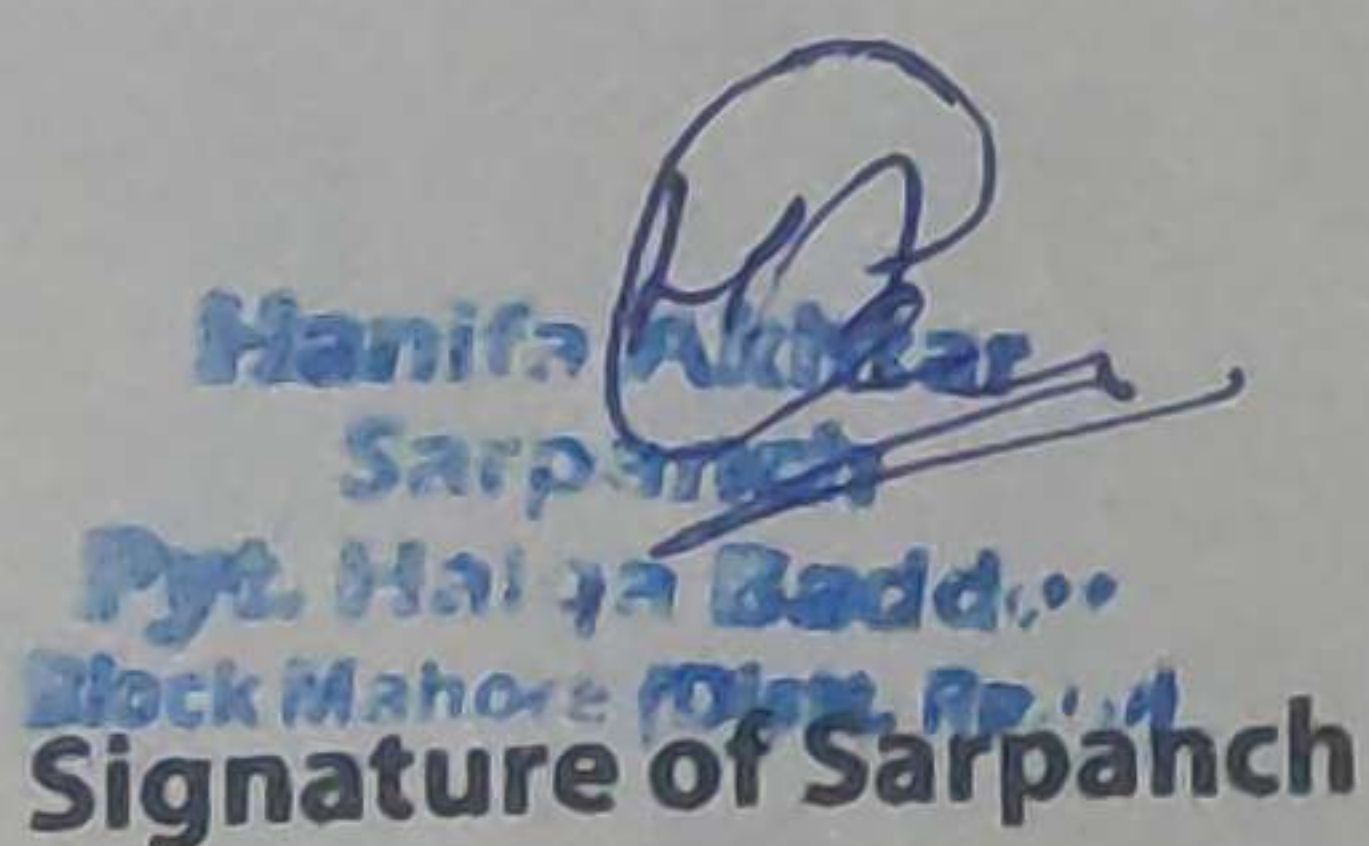 Hanifa Akhtar
Sarpanch
Pyt. Halqa
Block Mahore (Distt.
Signature of Sarpanch